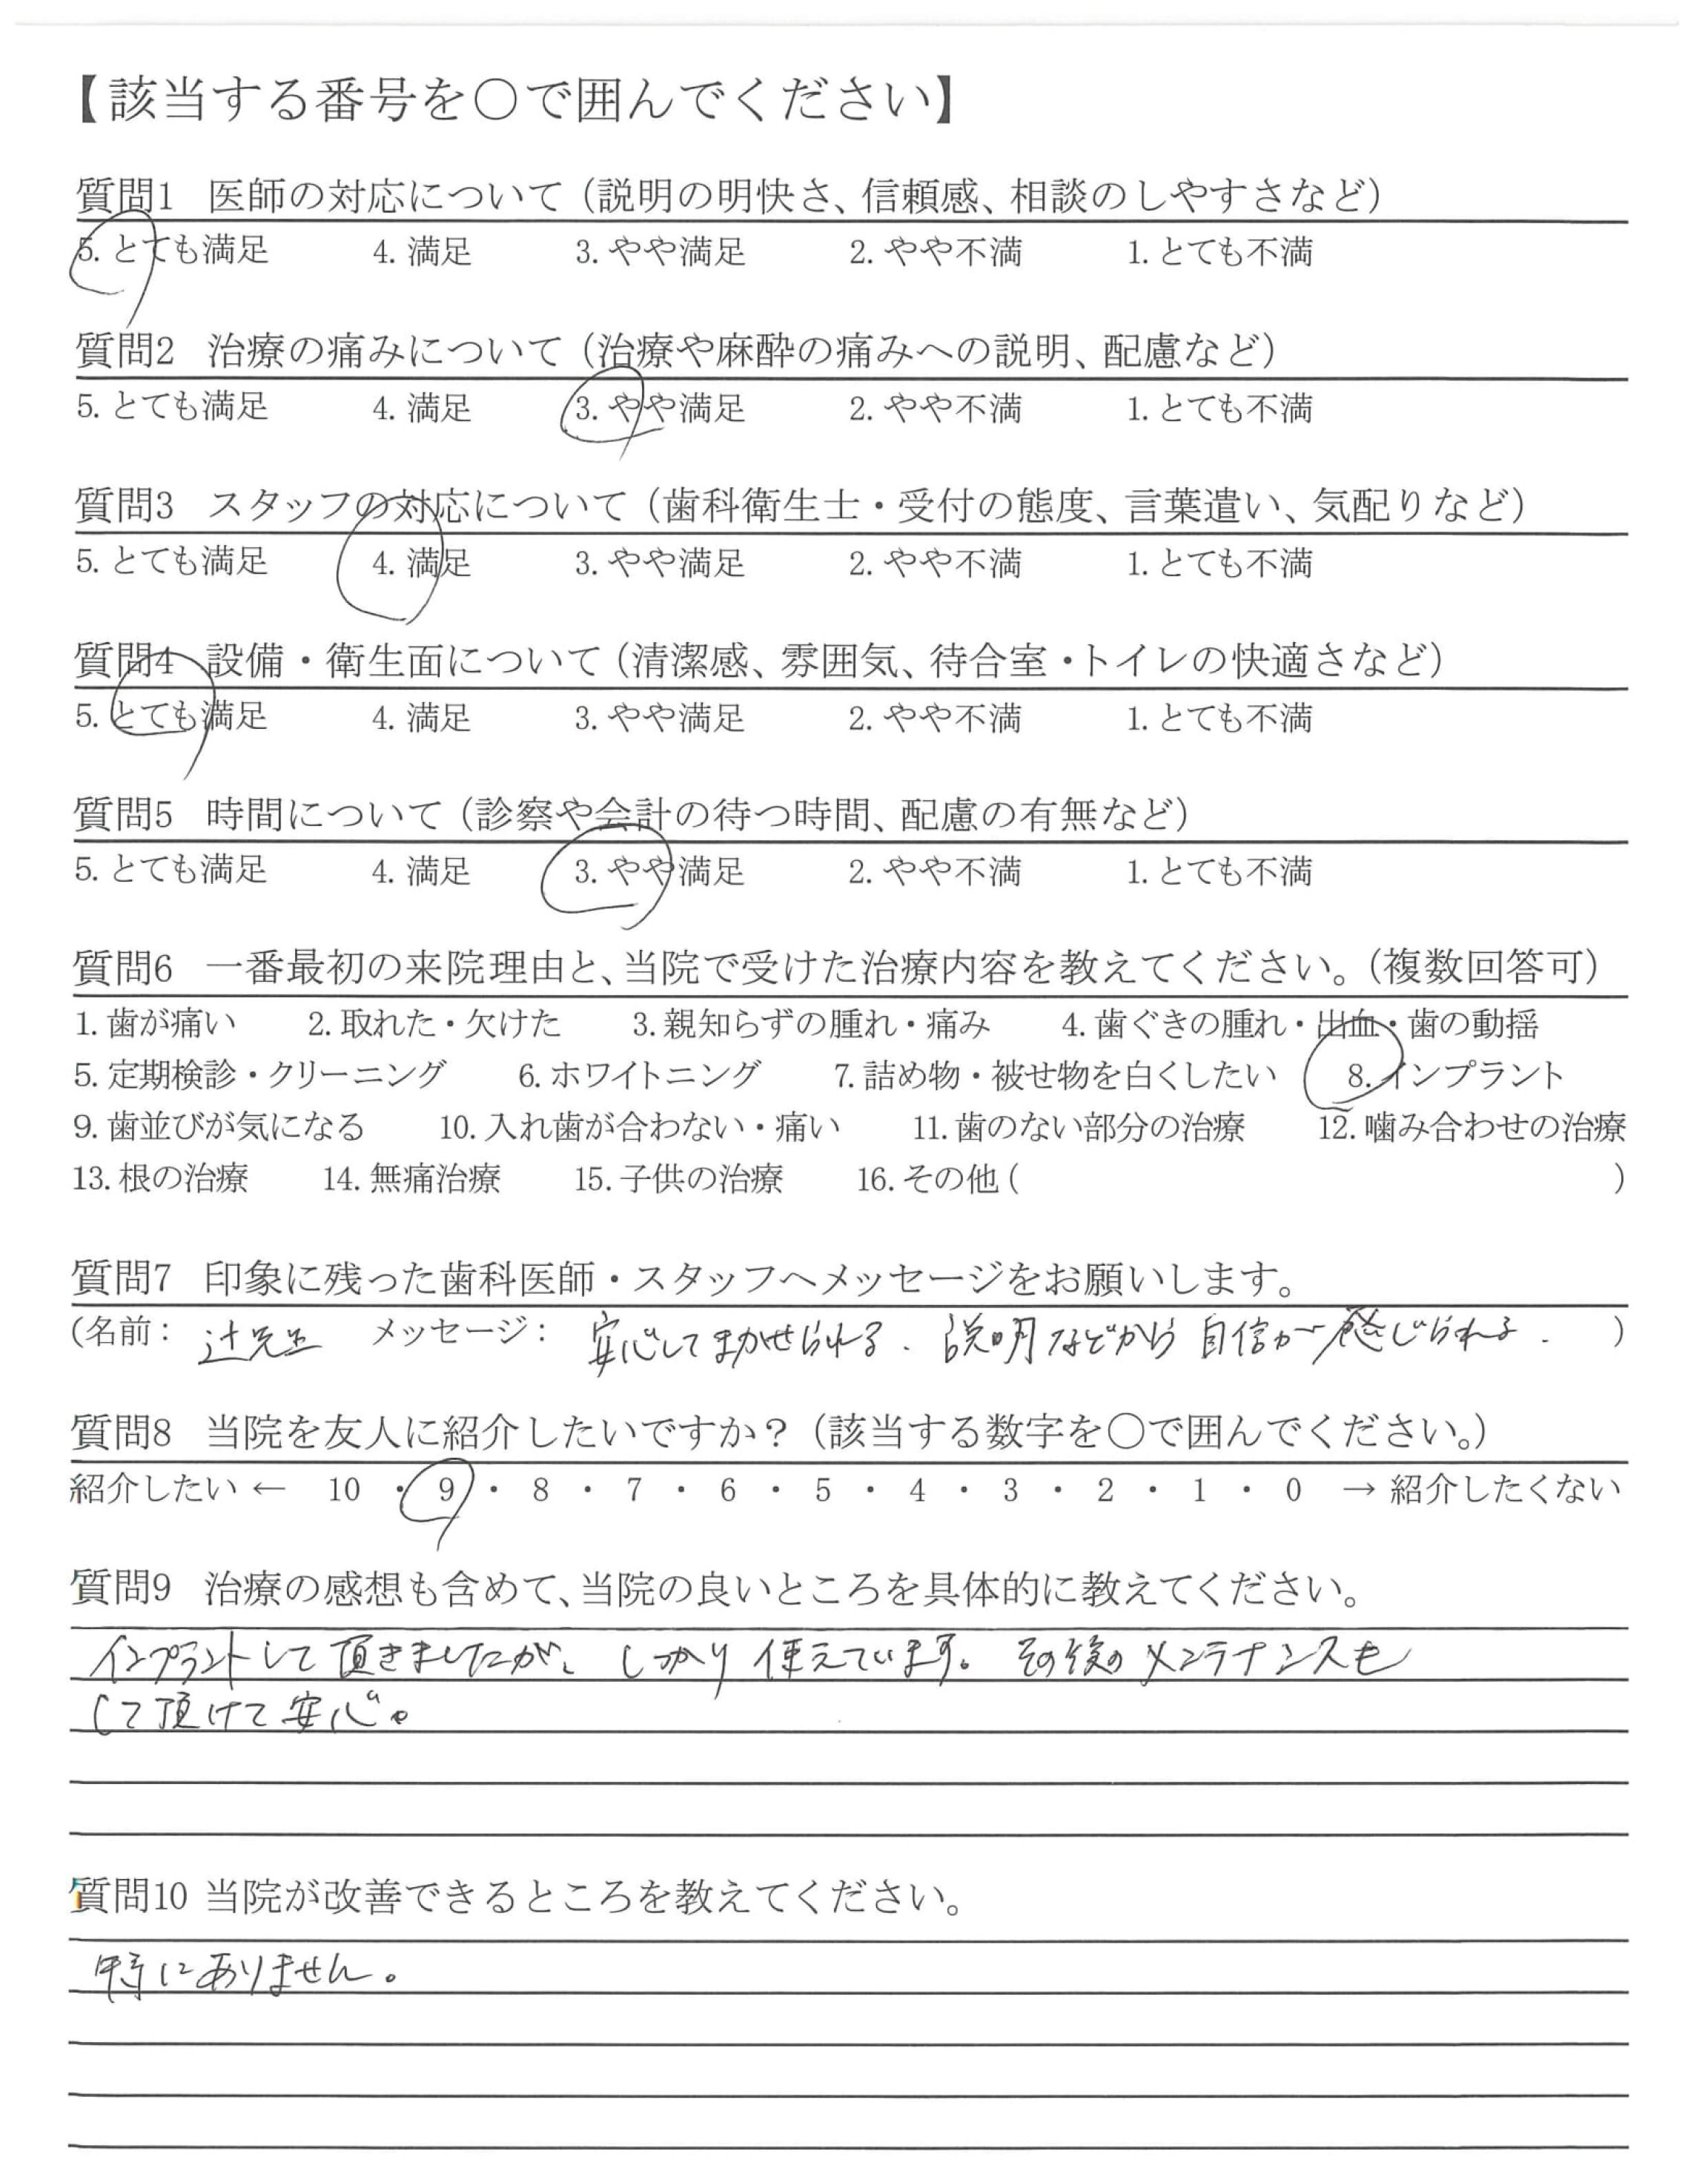 【該当する番号を○で囲んでください】
質問1 医師の対応について（説明の明快さ、信頼感、相談のしやすさなど）
5. とても満足 4. 満足 3. やや満足 2. やや不満 1. とても不満
質問2 治療の痛みについて（治療や麻酔の痛みへの説明、配慮など）
5. とても満足 4. 満足 3. やや満足 2. やや不満 1. とても不満
質問3 スタッフの対応について（歯科衛生士・受付の態度、言葉遣い、気配りなど）
5. とても満足 4. 満足 3. やや満足 2. やや不満 1. とても不満
質問4 設備・衛生面について（清潔感、雰囲気、待合室・トイレの快適さなど）
5. とても満足 4. 満足 3. やや満足 2. やや不満 1. とても不満
質問5 時間について（診察や会計の待つ時間、配慮の有無など）
5. とても満足 4. 満足 3. やや満足 2. やや不満 1. とても不満
質問6 一番最初の来院理由と、当院で受けた治療内容を教えてください。（複数回答可）
1. 歯が痛い 2. 取れた・欠けた 3. 親知らずの腫れ・痛み 4. 歯ぐきの腫れ・出血・歯の動揺
5. 定期検診・クリーニング 6. ホワイトニング 7. 詰め物・被せ物を白くしたい 8. インプラント
9. 歯並びが気になる 10. 入れ歯が合わない・痛い 11. 歯のない部分の治療 12. 噛み合わせの治療
13. 根の治療 14. 無痛治療 15. 子供の治療 16. その他（ ）
質問7 印象に残った歯科医師・スタッフへメッセージをお願いします。
（名前： 辻先生 メッセージ： 安心してまかせられる. 説明などから自信が感じられる. ）
質問8 当院を友人に紹介したいですか？（該当する数字を○で囲んでください。）
紹介したい ← 10 ・ 9 ・ 8 ・ 7 ・ 6 ・ 5 ・ 4 ・ 3 ・ 2 ・ 1 ・ 0 → 紹介したくない
質問9 治療の感想も含めて、当院の良いところを具体的に教えてください。
インプラントして頂きましたが、しっかり使えています。その後のメンテナンスも
して頂けて安心。
質問10 当院が改善できるところを教えてください。
特にありません。